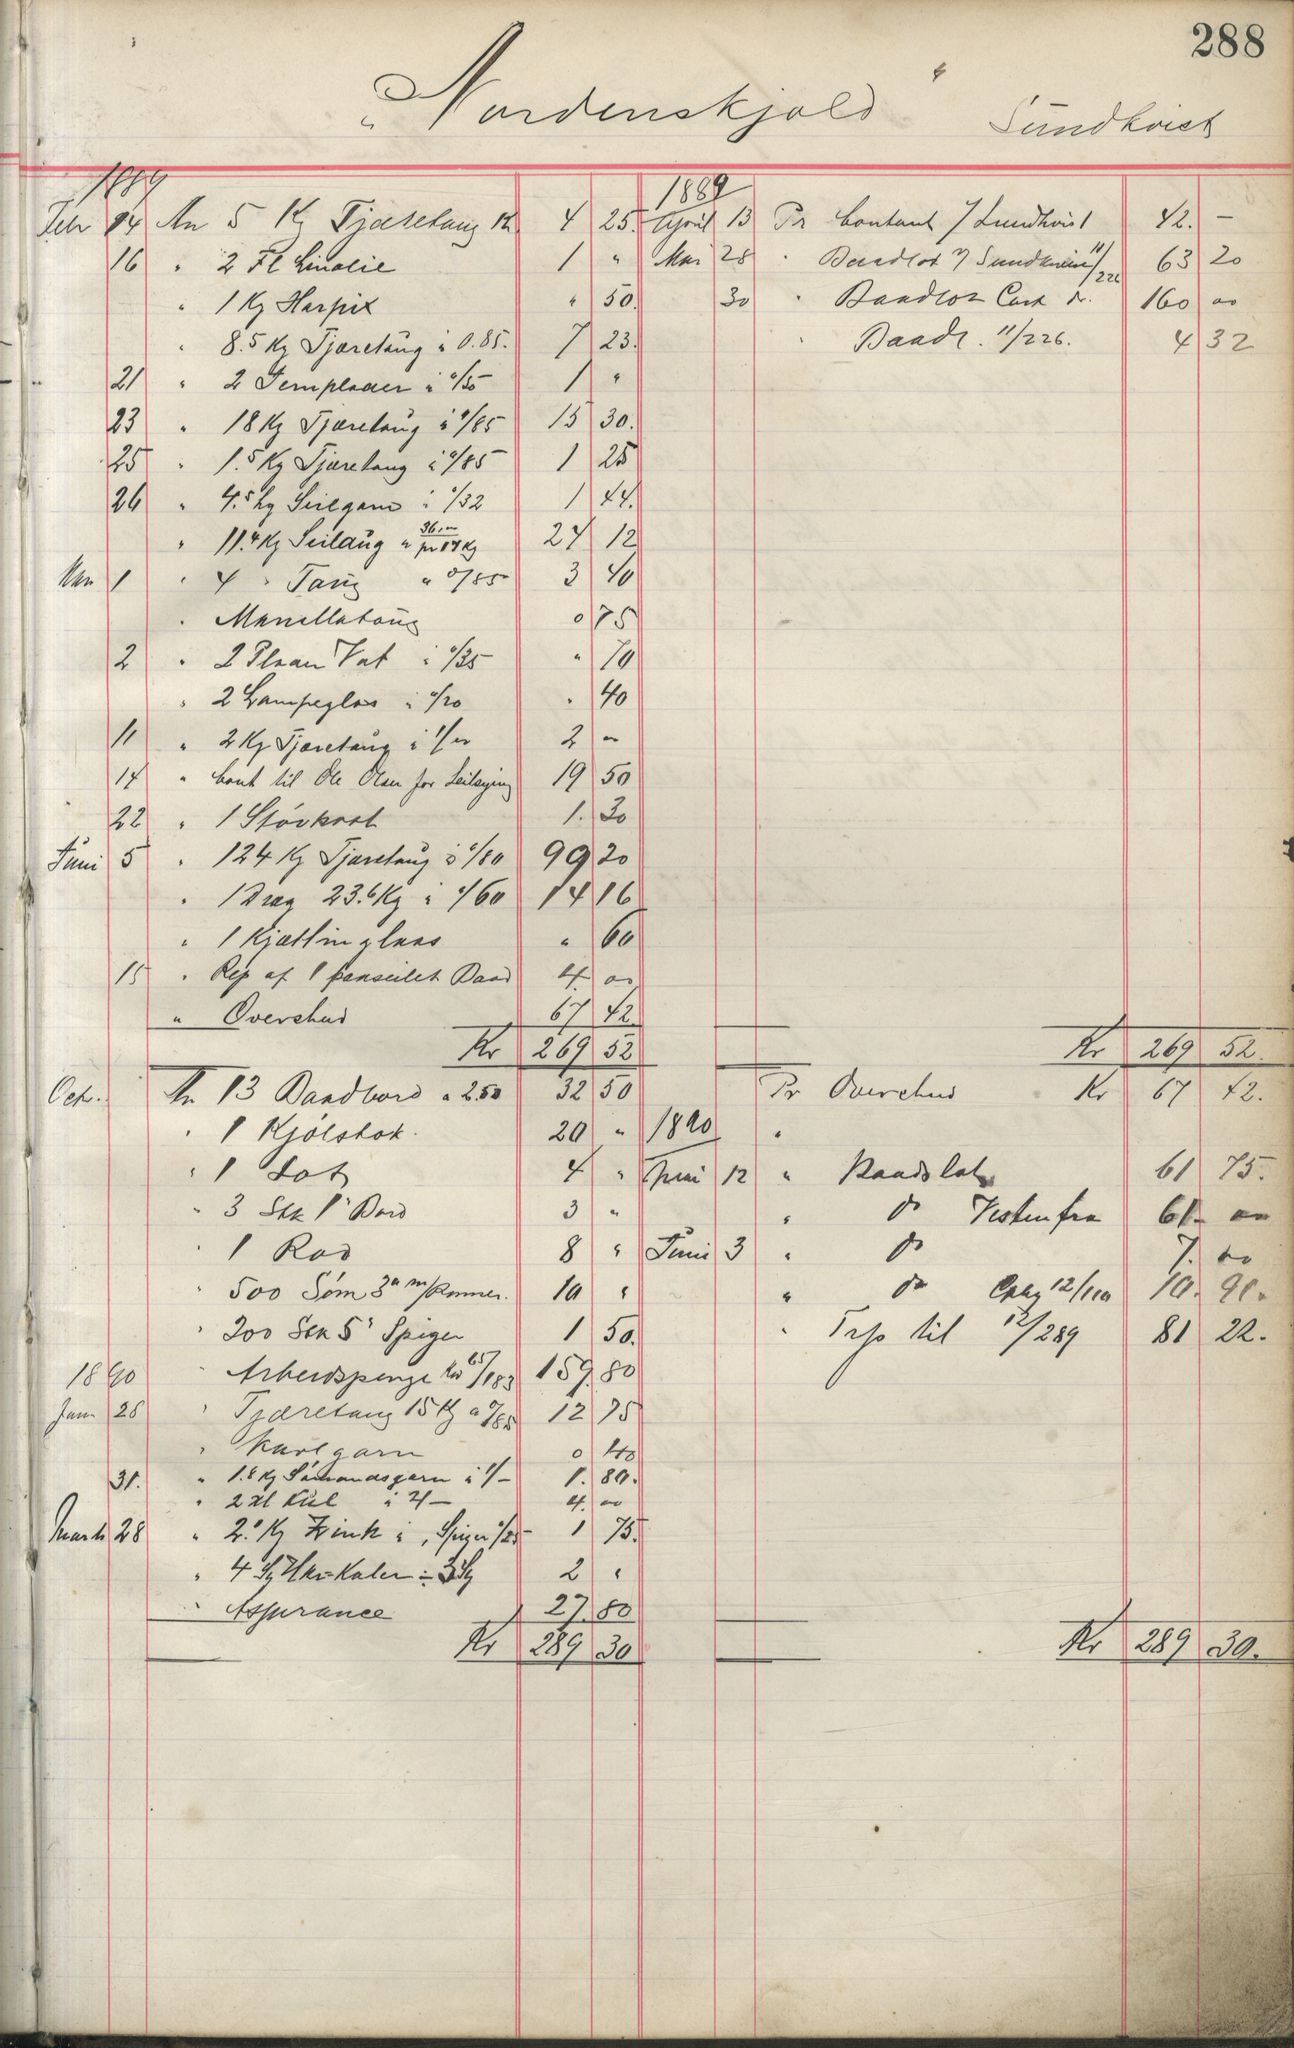 288
"Nordenskjold" Sundkvist
1889
Febr 14 An 5 Kg Tjæretaug 4 25.
16 " 2 Fl Linolie 1 "
" 1 Kg Harpix " 50.
" 8.5 Kg Tjæretaug à 0.85. 7 23.
21 " 2 à 0/50 1 "
23 " 18 Kg Tjæretaug à 0/85 15 30.
25 " 1.5 Kg Tjæretaug à 0/85 1 25
26 " 4.5 hg Seilgarn à 0/32 1 44.
" 11.4 Kg Seildug 24 12
Mar 1 " 4 " Taug " 0/85 3 40
" Manillataug 0 75
2 " 2 à 0/35 " 70
" 2 Lampeglas à 0/20 " 40
11 " 2 Kg Tjæretaug à 1/00 2 00
14 " Cont til Ole Olsen for 19 50
22 " 1 Støvkost 1. 30
Juni 5 " 124 Kg Tjæretaug à 0/80 99 20
" 1 Drag 23.6 Kg à 0/60 14 16
" 1 " 60
15 " Rep af 1 Baad 4. 00
" Overskud 67 42
Kr 269 52
Octr. An 13 Baadbord a 2.50 32 50
" 1 Kjølstok. 20 "
" 1 4 "
" 3 Stk 1" Bord 3 "
" 1 8 "
" 500 Søm 3" m/Rommer. 10 "
" 200 Stk 5" Spiger 1 50.
1890 " Arbeidspenge 159. 80
Jan. 28 " Tjæretaug 15 Kg a 0/85 12 75
" garn 0 40
31. " 1.8 Kg Sømandsgarn à 1/- 1. 80.
" 2 Hl Kul à 2/- 4. 00
Marts 28 " Kg Zink à , Spiger 0/25 1 75.
" 4 2 "
" Assurance 27. 80
Kr 289 30
1889
April 13 Pr Contant 7/Sundkvist 42. -
Mai 28 " Baadlot 7/Sundkvist 11/226 63 20
30 " Baadlot 160 00
" Baadl. 11/226. 4 32
Kr 269 52.
Pr Overskud Kr 67 42.
1890 "
12 " Baadslot 61 75.
" do Vestenfra 61. 00
Juni 3 " do 7. 00
" do 10. 91.
" Trp til 12/289 81 22.
Kr 289 30.